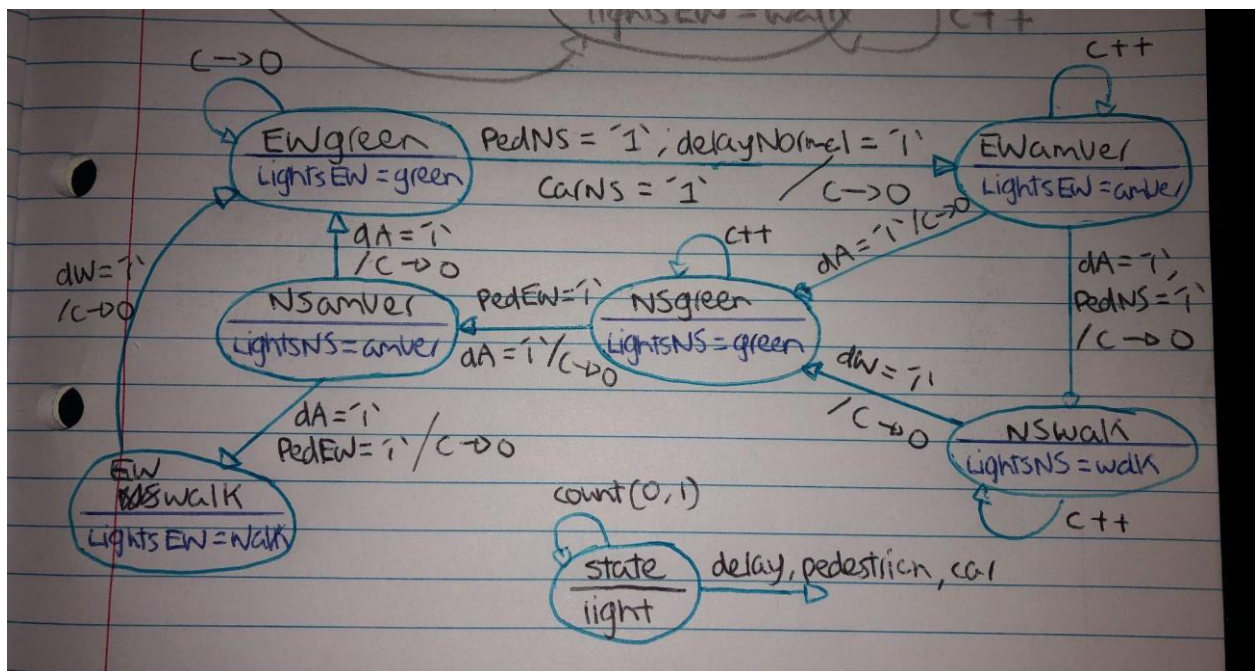 lightsEW = walk
C++
C→0
C++
EWgreen
LightsEW = green
PedNS = '1', delayNormal = '1'
CarNS = '1' / C→0
EWamver
LightsEW = amver
dA = '1'
/C→0
C++
dA = '1' /C→0
dW = '1'
/C→0
NSamver
LightsNS = amver
PedEW = '1'
dA = '1' /C→0
NSgreen
LightsNS = green
dA = '1',
PedNS = '1'
/C→0
dW = '1'
/C→0
dA = '1'
PedEW = '1' / C→0
NSwalk
LightsNS = walk
C++
EW
walk
LightsEW = Walk
count(0,1)
state
light
delay, pedestrian, car